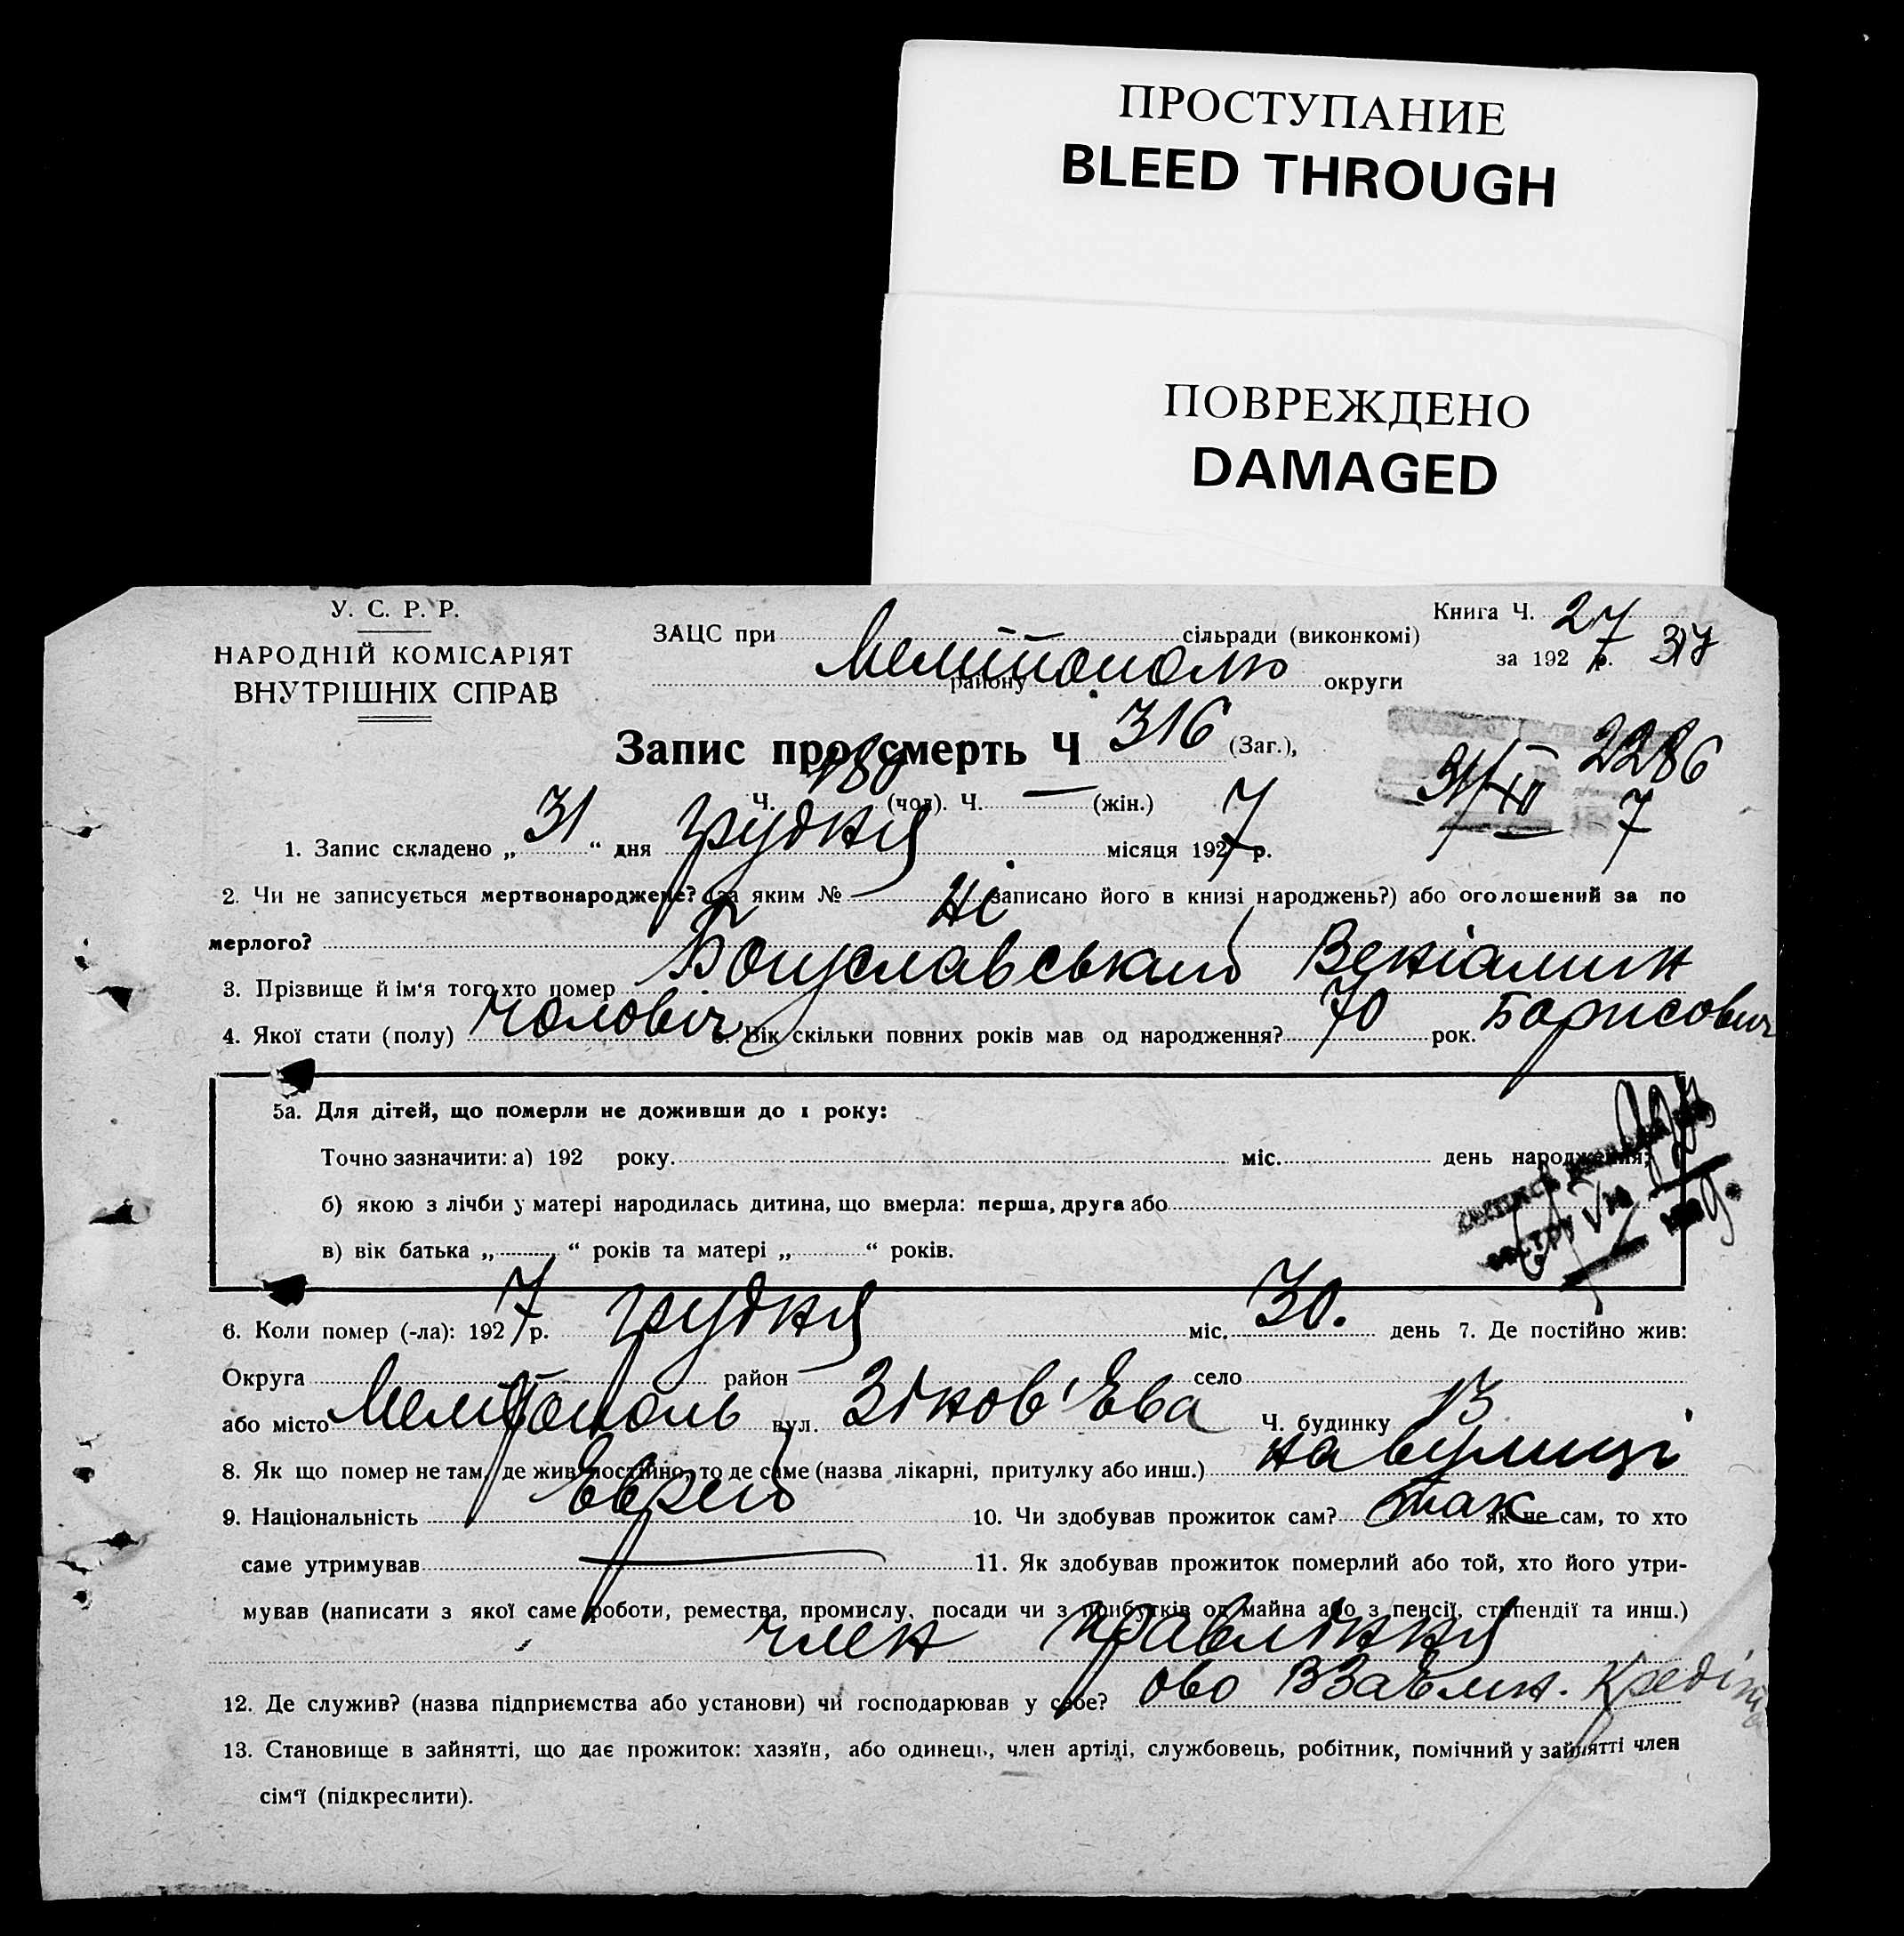 ПРОСТУПАНИЕ
BLEED THROUGH
ПОВРЕЖДЕНО
DAMAGED
У. С. Р. Р.
НАРОДНІЙ КОМІСАРІЯТ
ВНУТРІШНІХ СПРАВ
ЗАЦС при Мелітополю сільради (виконкомі)
району округи
Книга Ч. 27
за 1927 р. 317
Запис про смерть Ч 316 (Заг.),
2286
31/XII 7
Ч. 180 (чол). Ч. — (жін.)
1. Запис складено „31“ дня грудня місяця 1927 р.
2. Чи не записується мертвонароджене? (за яким № ні записано його в книзі народжень?) або оголошений за по
мерлого?
3. Прізвище й ім'я того хто помер Богуславський Веніамин
4. Якої стати (полу) чоловіч 5. Вік скільки повних років мав од народження? 70 рок. Борисович
5а. Для дітей, що померли не доживши до 1 року:
Точно зазначити: а) 192 року. міс. день народження;
б) якою з лічби у матері народилась дитина, що вмерла: перша, друга або
в) вік батька „ “ років та матері „ “ років.
6. Коли помер (-ла): 1927 р. грудня міс. 30. день 7. Де постійно жив:
Округа район село
або місто Мелітополь вул. Зінов'Ева Ч. будинку 13
8. Як що помер не там, де жив постійно, то де саме (назва лікарні, притулку або инш.) на вулиці
9. Національність Еврей 10. Чи здобував прожиток сам? так як не сам, то хто
саме утримував — 11. Як здобував прожиток померлий або той, хто його утри-
мував (написати з якої саме роботи, ремества, промислу, посади чи з прибутків од майна або з пенсії, стипендії та инш.)
член правління
12. Де служив? (назва підприємства або установи) чи господарював у себе? ово ВЗаємн. Кредіта
13. Становище в зайнятті, що дає прожиток: хазяїн, або одинець, член артілі, службовець, робітник, помічний у зайнятті член
сім'ї (підкреслити).